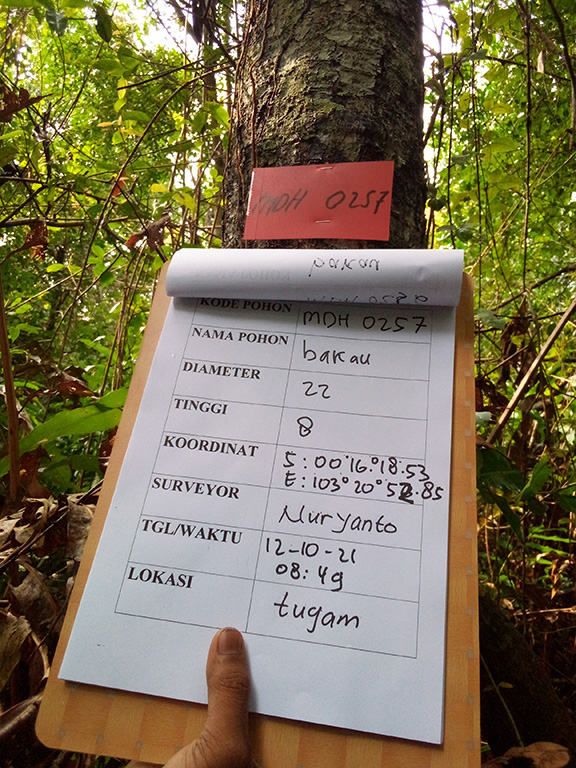 MDH 0257
KODE POHON MDH 0257
NAMA POHON bakau
DIAMETER 22
TINGGI 8
KOORDINAT S : 00°16.°18.53
E : 103°20°52.85
SURVEYOR Nuryanto
TGL/WAKTU 12-10-21
08:49
LOKASI tugam